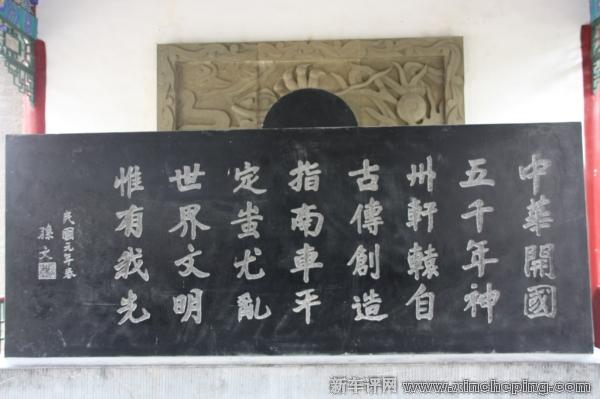 中華開國
五千年神
州軒轅自
古傳創造
指南車平
定蚩尤亂
世界文明
惟有我先
民國元年春
孫文
新车评网 www.xincheping.com